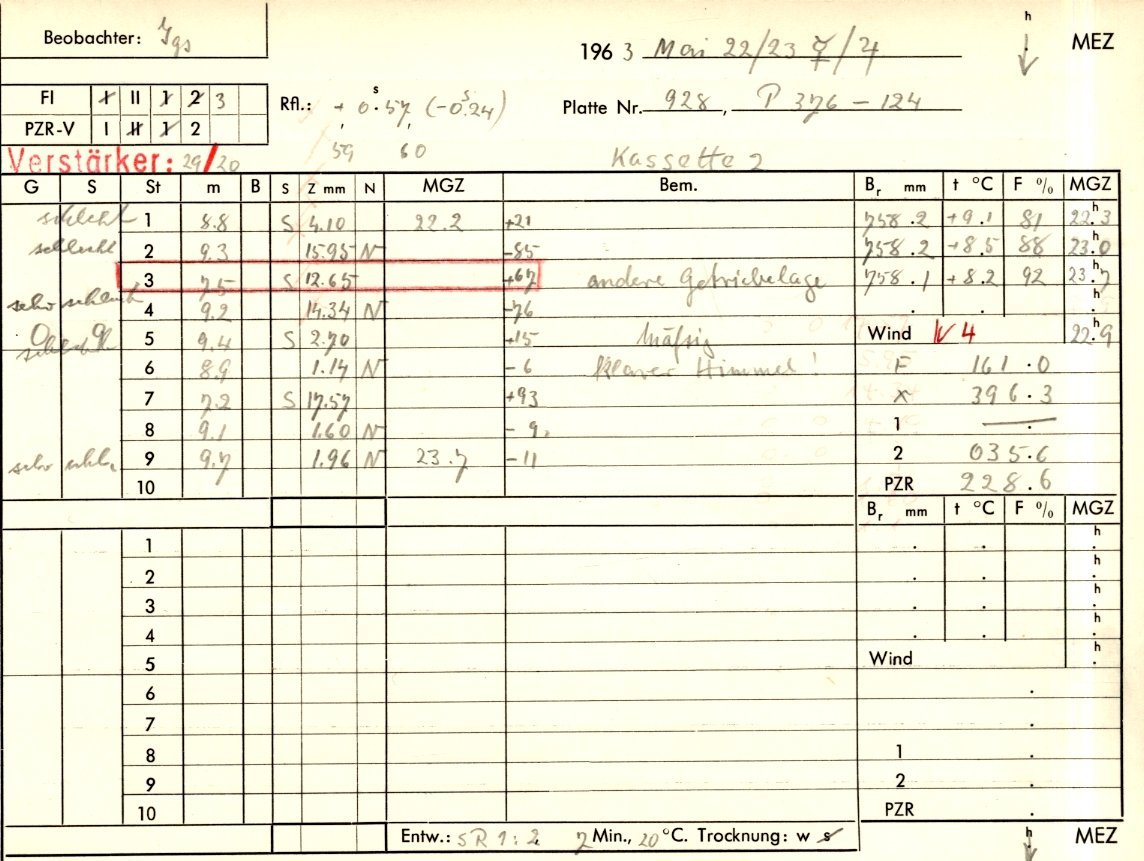 Beobachter: Jgs
h
1963 Mai 22/23 ☿/♃ MEZ
FI I II 1 2 3
PZR-V I II 1 2
Rfl.: + 0ˢ.57 (-0ˢ.24)
59 60
Platte Nr. 928, P 376 - 124
Verstärker: 29/20
Kassette 2
G S St m B S Z mm N MGZ Bem. Bᵣ mm t °C F % MGZ
schlecht 1 8.8 S 4.10 22.2 +21 758.2 +9.1 81 22ʰ.3
schlecht 2 9.3 15.95 N -85 758.2 +8.5 88 23ʰ.0
3 7.5 S 12.65 +67 andere Getriebelage 758.1 +8.2 92 23ʰ.7
sehr schlecht 4 9.2 14.34 N -76 . . h.
schlecht 5 9.4 S 2.70 +15 Mäßig Wind W 4 22ʰ.9
6 8.9 1.14 N -6 klarer Himmel! F 161.0
7 7.2 S 17.57 +93 x 396.3
8 9.1 1.60 N -9. 1 — .
sehr schl. 9 9.7 1.96 N 23.7 -11 2 035.6
10 PZR 228.6
Bᵣ mm t °C F % MGZ
1 . . h.
2 . . h.
3 . . h.
4 . . h.
5 Wind h.
6 .
7 .
8 1 .
9 2 .
10 PZR .
Entw.: SR 1:2 7 Min., 20 °C. Trocknung: w s h MEZ